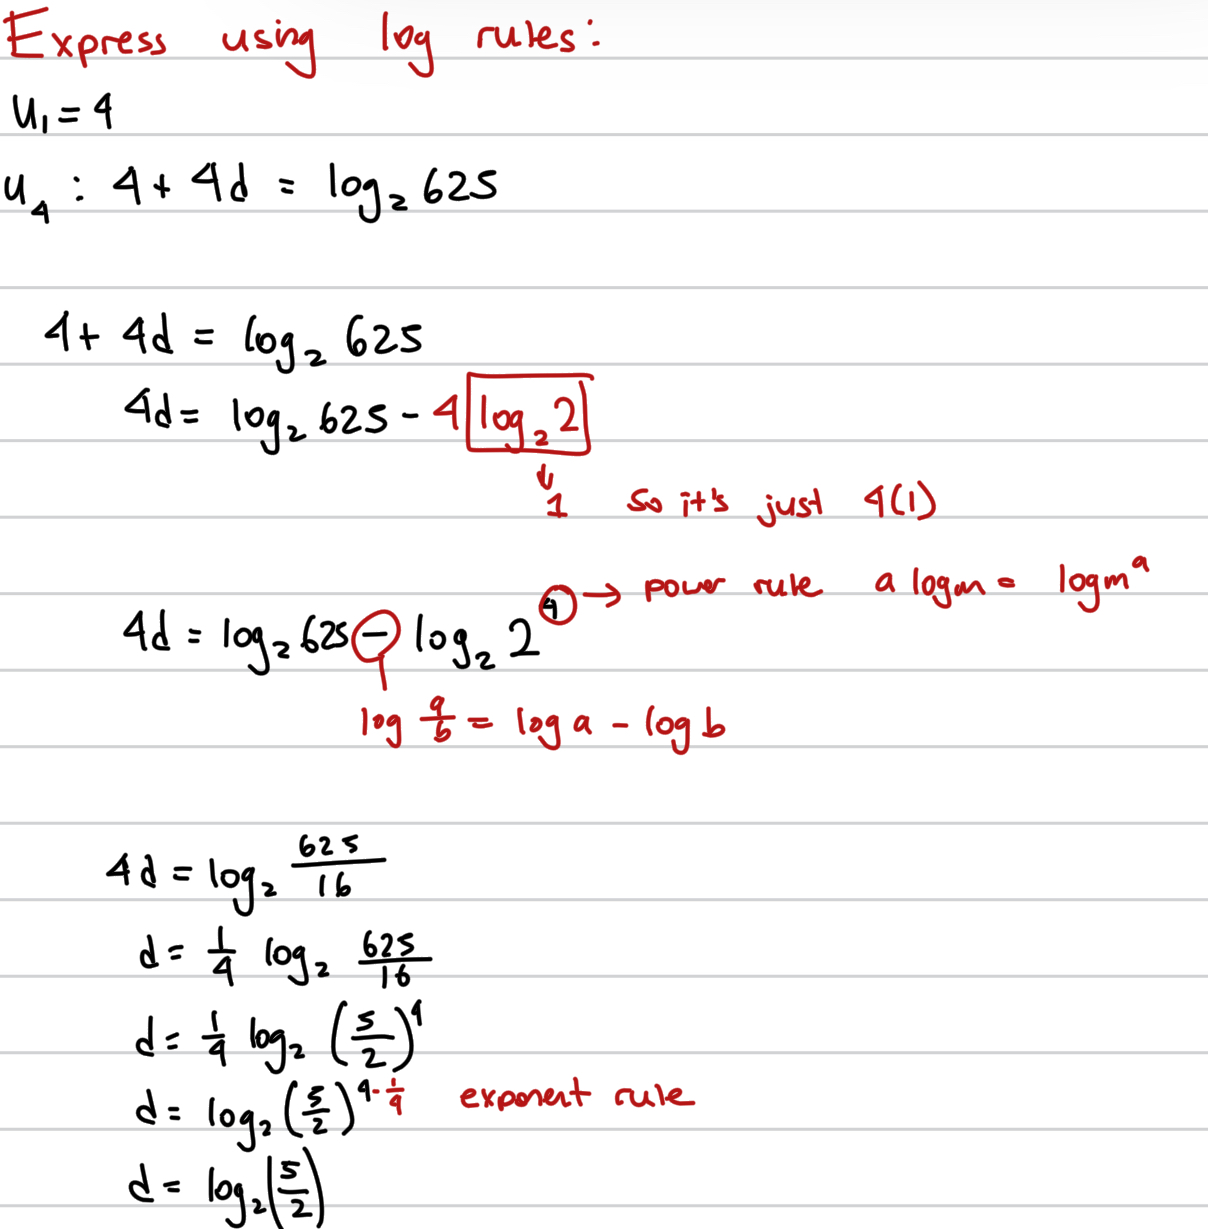 Express using log rules:
u₁ = 4
u₄ : 4 + 4d = log₂ 625
4 + 4d = log₂ 625
4d = log₂ 625 - 4 log₂ 2
↓
1 so it's just 4(1)
→ power rule a logm = logmᵃ
4d = log₂ 625 − log₂ 2⁴
log a/b = log a - log b
4d = log₂ 625/16
d = 1/4 log₂ 625/16
d = 1/4 log₂ (5/2)⁴
d = log₂ (5/2)^(4·1/4) exponent rule
d = log₂ (5/2)